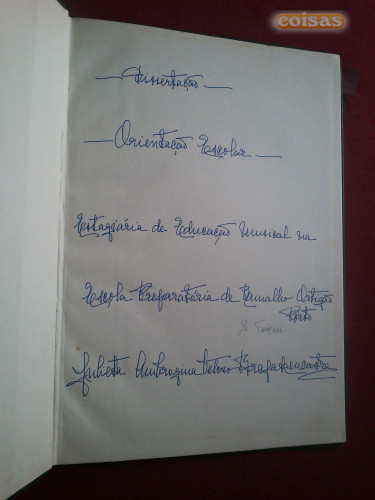 coisas
— Dissertação —
— Orientação Escolar —
Estagiária de Educação Musical na
Escola Preparatória de Ramalho Ortigão
Porto
Julieta Ambrozina Veloso Braga